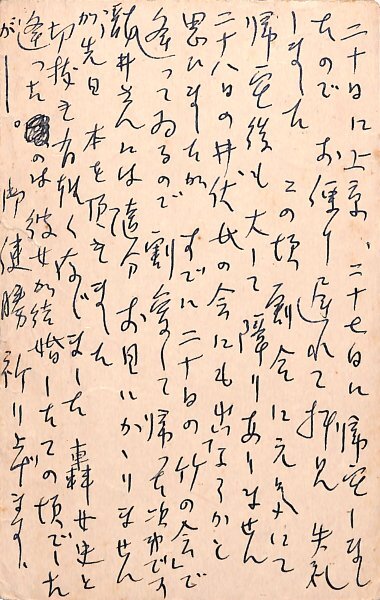 二十日に上京、二十七日に帰宅しまし
たので お便り遅れて拝見 失礼
しました この頃 割合に元気にて
帰宅後も大して障りありません
二十八日の井伏氏の会にも出ようかと
思いましたが すでに二十日の竹の会で
逢ってゐるので 割愛して帰った次第です
龍井さんには随分お目にかゝりません
が先日 本を頂きました
切抜き有難く存じました 轟女史と
逢ったのは彼女が結婚したての頃でした
が――。御健勝祈り上げます、